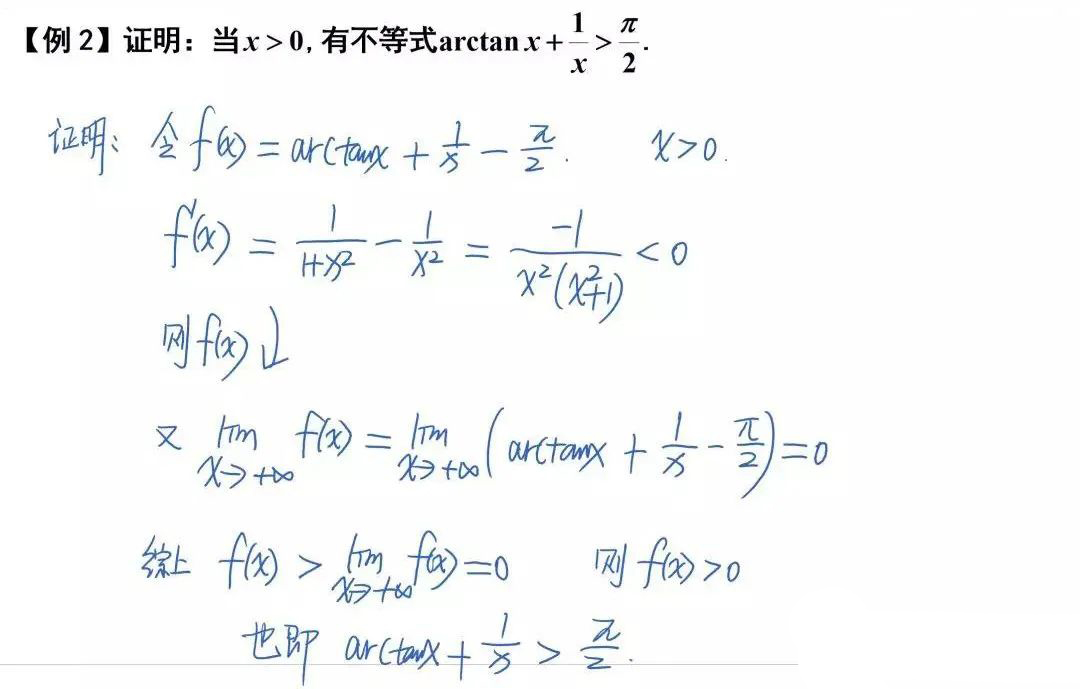 【例2】证明：当x>0，有不等式arctan x + 1/x > π/2.
证明：令 f(x) = arctanx + 1/x − π/2. x>0.
f'(x) = 1/(1+x²) − 1/x² = −1/(x²(x²+1)) < 0
则 f(x) ↓
又 lim x→+∞ f(x) = lim x→+∞ (arctanx + 1/x − π/2) = 0
综上 f(x) > lim x→+∞ f(x) = 0 则 f(x) > 0
也即 arctanx + 1/x > π/2.